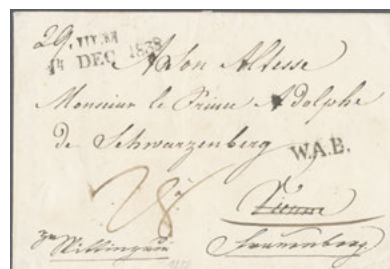 29. ULM
14 DEC 1838
A Son Altesse
Monsieur le Prince Adolphe
de Schwarzenberg
W.A.B.
Vienne
Frauenberg
zu